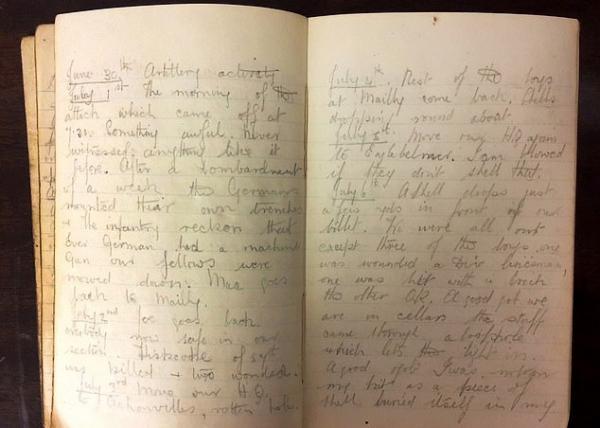 June 30th Artillery activity
July 1st The morning of the
attack which came off at
7.30 Something awful. Never
witnessed anything like it
before. After a bombardment
of a week the Germans
mounted their own trenches
& the infantry reckon that
Ever German had a machine
Gun our fellows were
mowed down. Mac goes
back to Mailly.
July 2nd Joe goes back
everybody now safe in our
section. of sigs
was killed & two wounded.
July 3rd Move our H.Q.
to Achonvilles, rotten hole.
July 4th. Rest of the boys
at Mailly come back. Shells
dropping round about.
July 5th. Move our HQ again
to Englebelmer. I am blowed
if they don't shell that.
July 6th A shell drops just
a few yds in front of our
billet. We were all out
except three of the boys one
was wounded a Div linesman,
one was hit with a brick
the other O.K. A good job we
are in cellars the stuff
came through a loophole
which lets the light in.
A good job I was
my kit as a piece of
shell buried itself in my